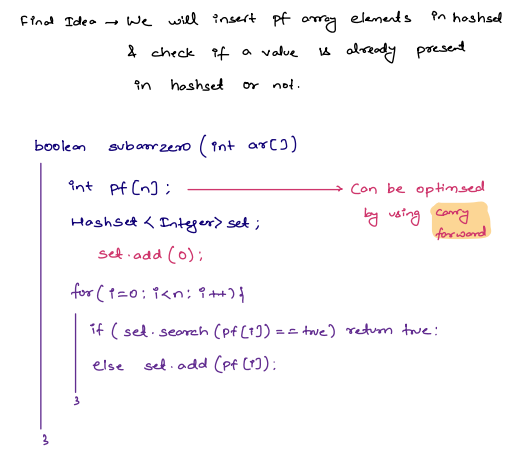 Final Idea → We will insert pf array elements in hashset
& check if a value is already present
in hashset or not.
boolean subarrzero (int ar[])
int pf[n]; → Can be optimsed
by using carry
forward
HashSet < Integer> set;
set.add(0);
for(i=0; i<n; i++){
if ( set.search (pf[i]) == true) return true;
else set.add (pf[i]);
}
}